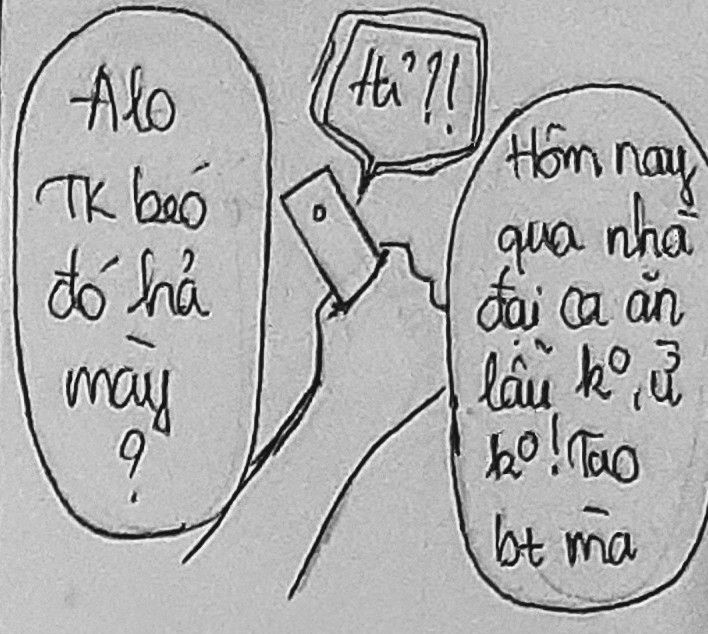 Alo
TK beó
đó hả
mày
?
Hả?!
Hôm nay
qua nhà
đại ca ăn
lẩu k°, ừ
k°! Tao
bt mà